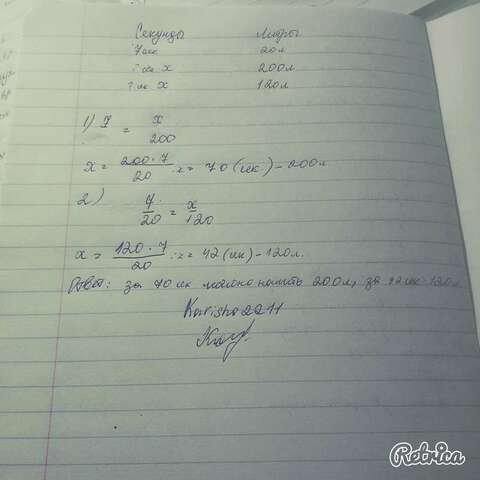 Секунды Литры
7 сек 20л
? сек х 200л
? сек х 120л
1) 7 = х/200
х = 200·7/20 := 70 (сек) – 200л
2) 7/20 = х/120
х = 120·7/20 := 42 (сек) – 120л.
Ответ: за 70 сек можно налить 200л, за 42 сек - 120л
Karisha2211
Retrica